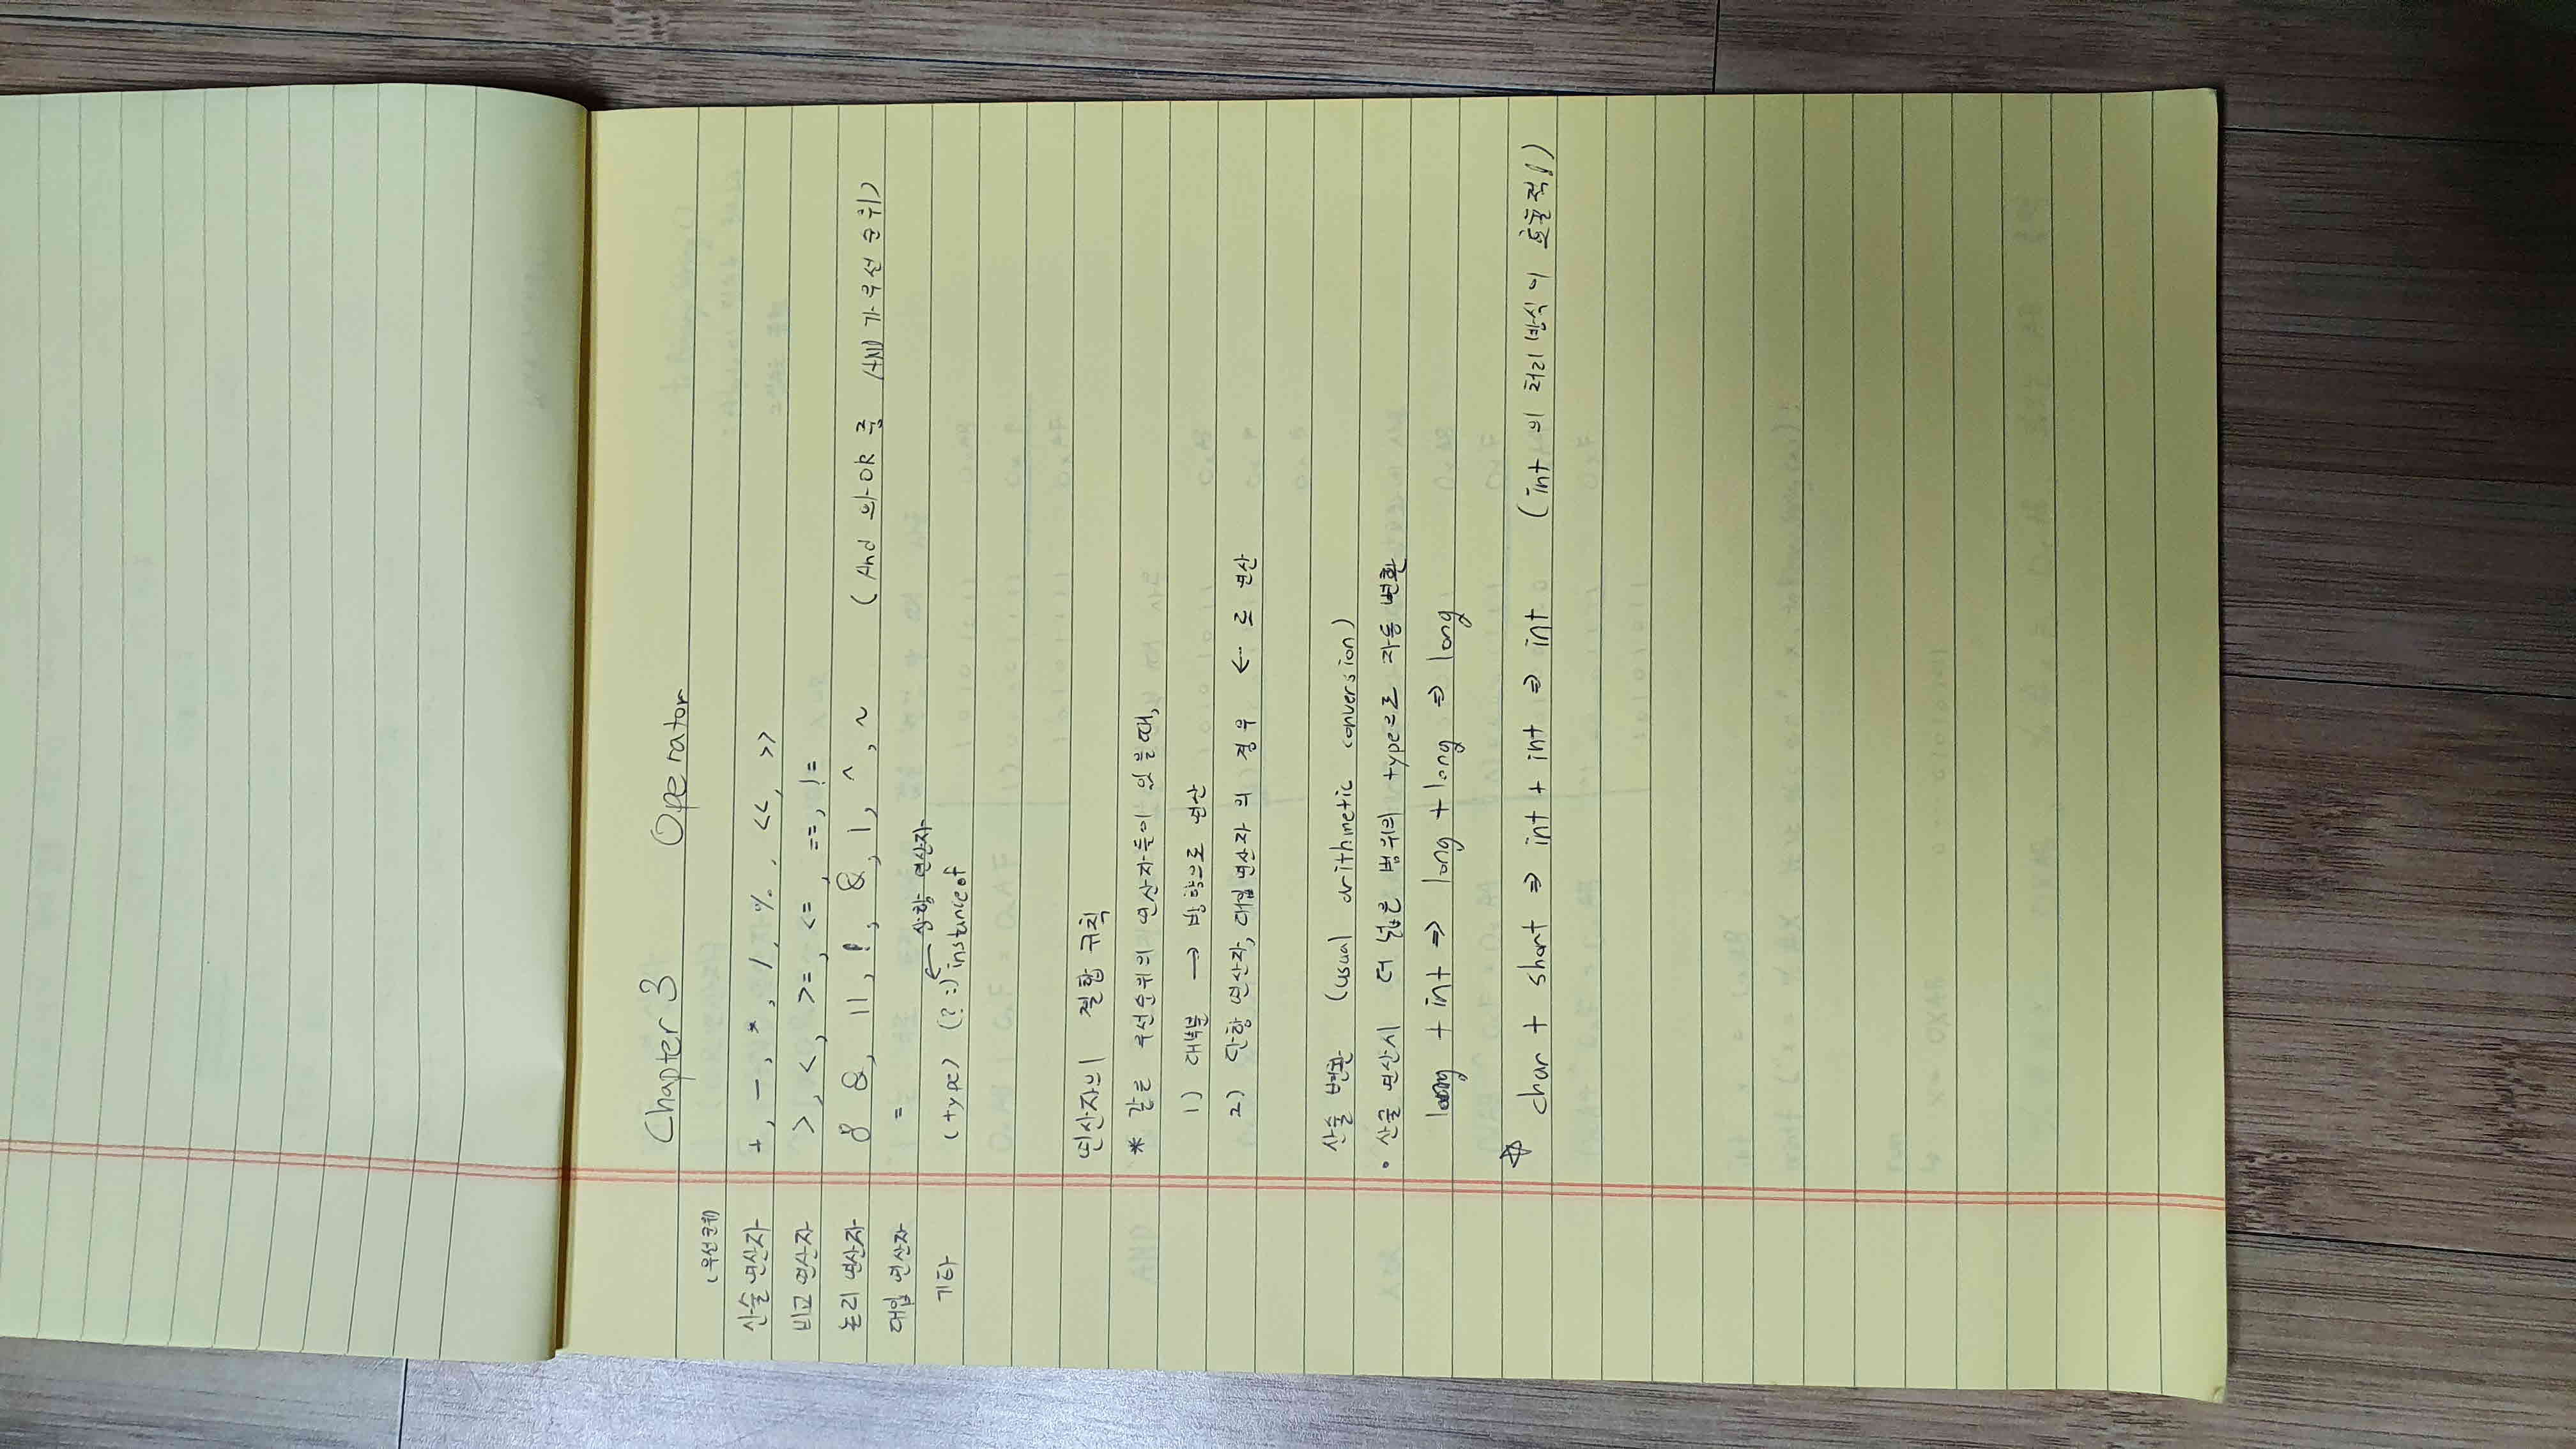 Chapter 3 Operator
(우선순위)
산술 연산자 +, -, *, /, %, <<, >>
비교 연산자 >, <, >=, <=, ==, !=
논리 연산자 & &, ||, !, &, |, ^, ~ (And 와 OR 중 AND 가 우선 순위)
대입 연산자 =
삼항 연산자
기타 (type) (? :) instanceof
연산자의 결합 규칙
* 같은 우선순위의 연산자들이 있을때,
1) 대부분 → 방향으로 연산
2) 단항 연산자, 대입 연산자 의 경우 ← 로 연산
산술 변환 (usual arithmetic conversion)
• 산술 연산시 더 넓은 범위의 type으로 자동 변환
long + int ⇒ long + long ⇒ long
☆ char + short ⇒ int + int ⇒ int (int 의 처리 방식이 효율적!)